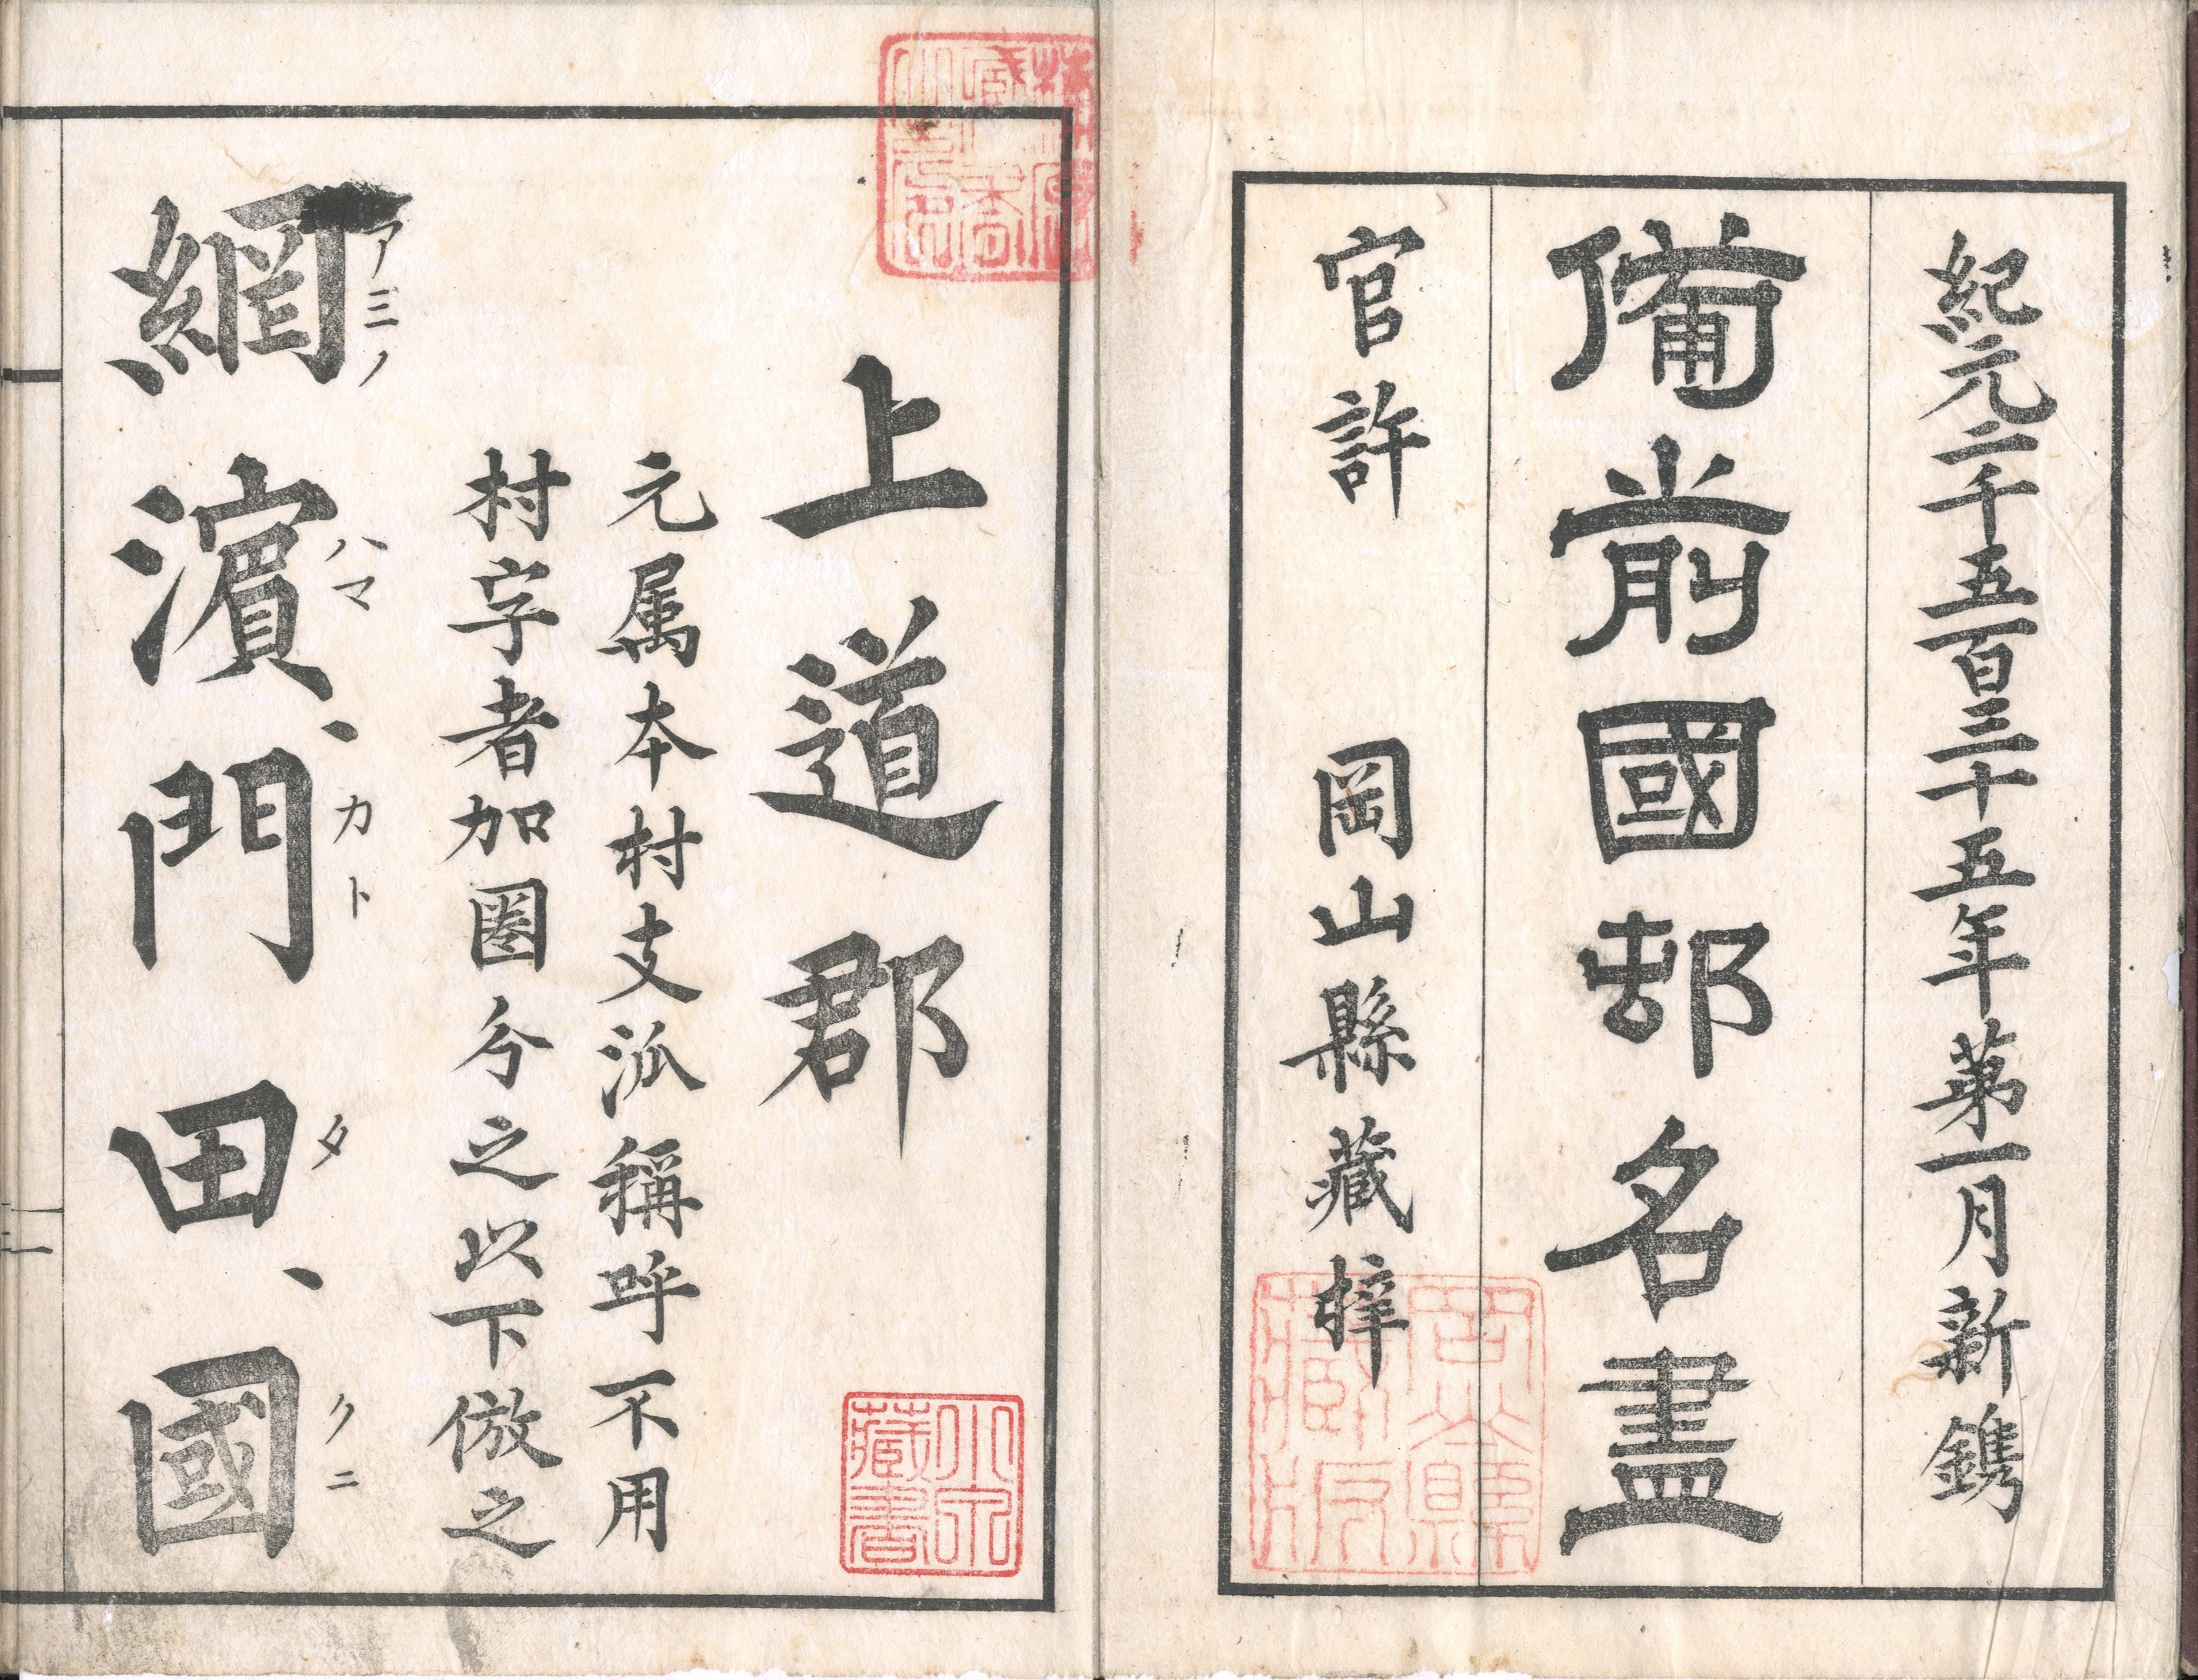 紀元二千五百三十五年苐一月新鐫
備前國邨名盡
官許 岡山縣藏梓
岡山縣藏版
上道郡
元属本村支泒稱呼不用
村字者加圏分之以下倣之
アミノ ハマ カト タ クニ
網濱、門田、國